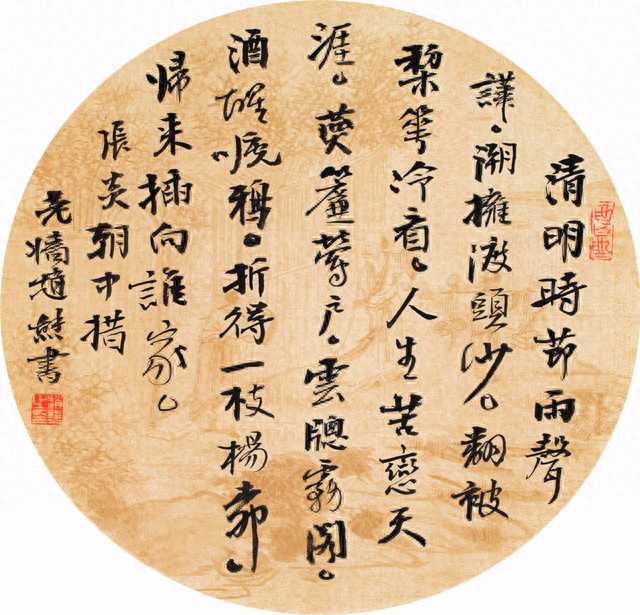 清明時節雨聲
譁。潮擁渡頭沙。翻被
棃華冷看。人生苦戀天
涯。燕簾鶯户。雲牕霧閣。
酒醒啼鴉。折得一枝楊桺。
帰来插向誰家。
張炎朝中措
牆趙熊書